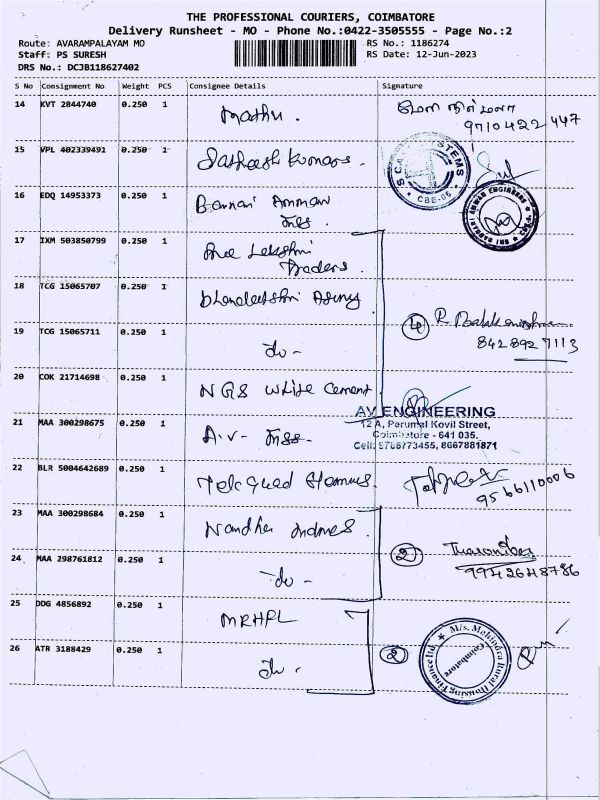 THE PROFESSIONAL COURIERS, COIMBATORE
Delivery Runsheet - MO - Phone No.:0422-3505555 - Page No.:2
Route: AVARAMPALAYAM MO
RS No.: 1186274
Staff: PS SURESH
RS Date: 12-Jun-2023
DRS No.: DCJB118627402
S No Consignment No Weight PCS Consignee Details Signature
14 KVT 2844740 0.250 1
9710422447
15 VPL 402339491 0.250 1 Sathish Kumar.
CBE-06
16 EDQ 14953373 0.250 1 Bannari Amman
17 IXM 503850799 0.250 1 Sree Lakshmi
Traders.
18 TCG 15065707 0.250 1
4
842 892 7113
19 TCG 15065711 0.250 1 do -
20 COK 21714698 0.250 1 NGS white Cement
AV ENGINEERING
12 A, Perumal Kovil Street,
Coimbatore - 641 035.
Cell: 9786773455, 8667881871
21 MAA 300298675 0.250 1 A.V-
22 BLR 5004642689 0.250 1
9566110006
23 MAA 300298684 0.250 1 Nandha
2
9942648786
24 MAA 298761812 0.250 1 do -
25 DDG 4856892 0.250 1 MRHFL
26 ATR 3188429 0.250 1 do -
2
M/s. Mahindra Rural Housing Finance Ltd.
Coimbatore